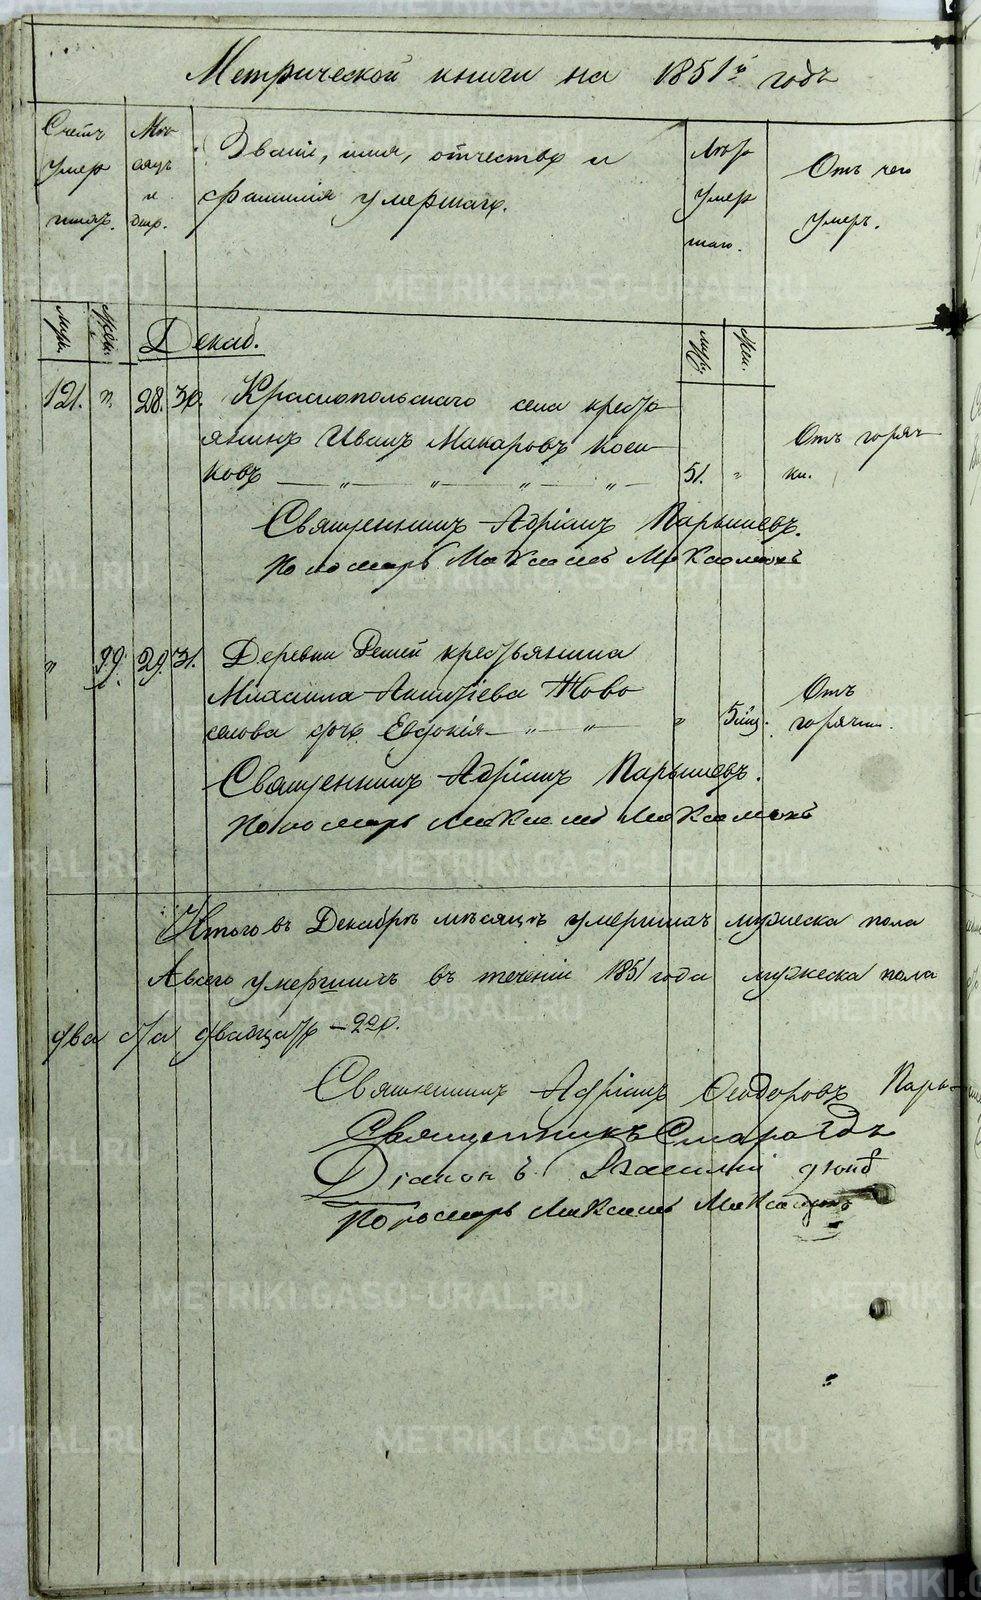 Метрической книги на 1851й годъ
Счетъ умер шихъ.
Мѣсяцъ и день.
Званіе, имя, отчество и
фамилія умершаго.
Лѣта умер шаго.
Отъ чего
умеръ.
Муж. Жен.
Декаб.
Муж. Жен.
121. " 28. 30. Краснопольскаго села кресть
янинъ Иванъ Макаровъ Коси
ковъ — " — " — " — " — 51. " Отъ горяч
ки.
Священникъ Адріанъ Парышевъ.
Пономарь Максимъ
" 99. 29. 31. Деревни крестьянина
Михаила Ново
селова дочь Евдокія — " — " — " 5 мѣц. Отъ
горячки.
Священникъ Адріанъ Парышевъ.
Пономарь Максимъ
Итого въ Декабрѣ мѣсяцѣ умершихъ мужеска пола
А всего умершихъ въ теченіи 1851 года мужеска пола
два ста двадцать — 220.
Священникъ Адріанъ Феодоровъ Пары-
Священникъ Смарагдъ
Діаконъ Василій
Пономарь Максимъ
METRIKI.GASO-URAL.RU